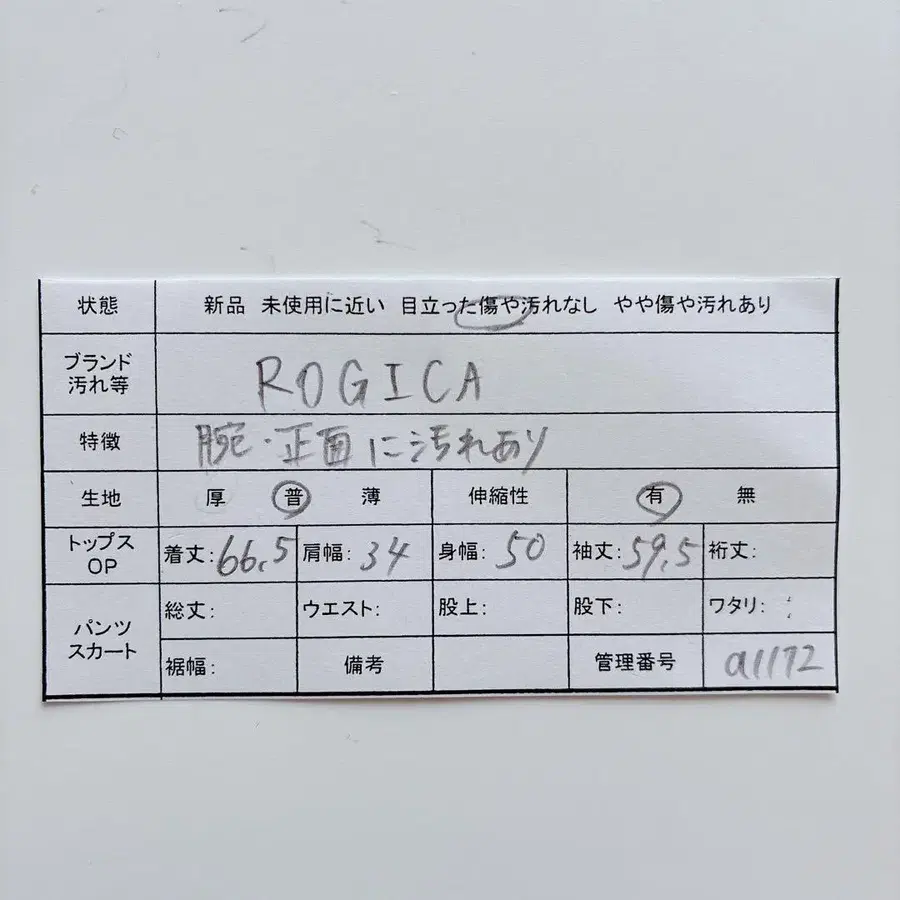 状態 新品 未使用に近い 目立った傷や汚れなし やや傷や汚れあり
ブランド
汚れ等
ROGICA
特徴 腕・正面に汚れあり
生地 厚 普 薄 伸縮性 有 無
トップス
OP
着丈:66.5 肩幅:34 身幅:50 袖丈:59.5 裄丈:
パンツ
スカート
総丈: ウエスト: 股上: 股下: ワタリ:
裾幅: 備考 管理番号 a1172